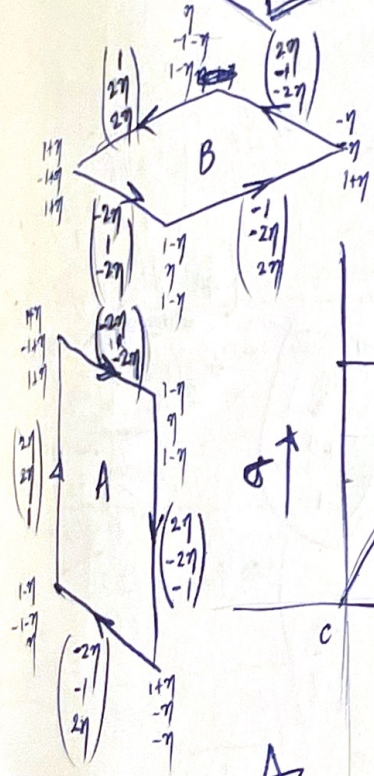 η
-1-η
1-η
1
2η
2η
2η
-1
-2η
B
-η
-η
1+η
1+η
-1+η
1+η
-2η
1
-2η
1-η
η
1-η
-1
-2η
2η
1+η
-1+η
1+η
-2η
1
-2η
1-η
η
1-η
2η
2η
1
A
2η
-2η
-1
σ
1-η
-1-η
η
-2η
-1
2η
1+η
-η
-η
C